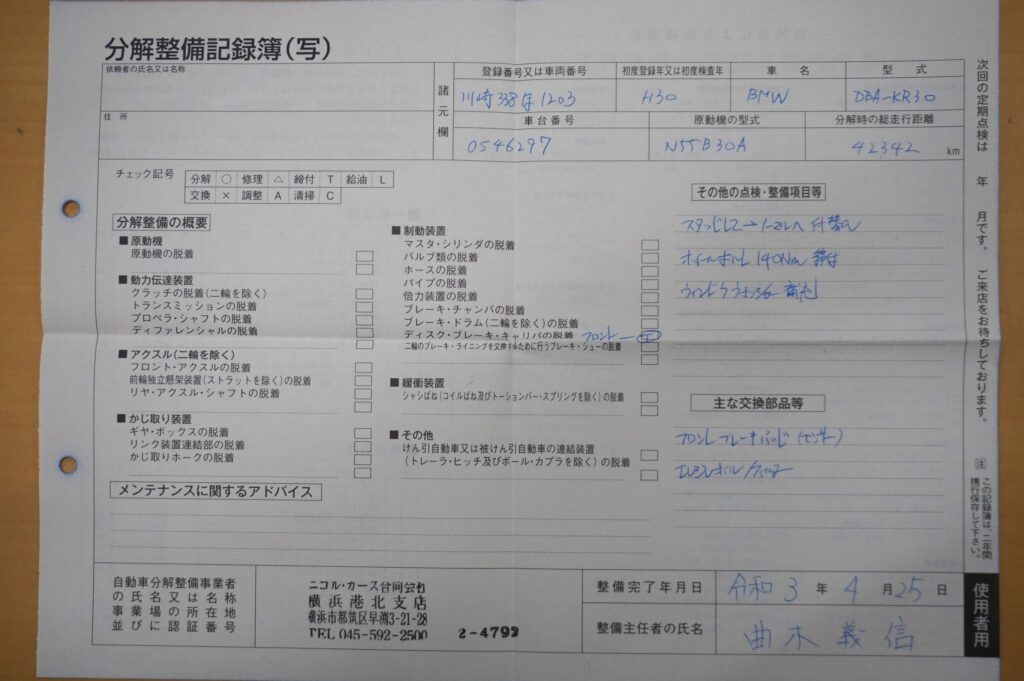 分解整備記録簿(写)
依頼者の氏名又は名称
住 所
諸元欄
登録番号又は車両番号
初度登録年又は初度検査年
車 名
型 式
川崎 338 1203
H30
BMW
DBA-KR30
車台番号
原動機の型式
分解時の総走行距離
0546297
N55B30A
42342 km
チェック記号
分解 ○ 修理 △ 締付 T 給油 L
交換 × 調整 A 清掃 C
分解整備の概要
■原動機
原動機の脱着
■動力伝達装置
クラッチの脱着(二輪を除く)
トランスミッションの脱着
プロペラ・シャフトの脱着
ディファレンシャルの脱着
■アクスル(二輪を除く)
フロント・アクスルの脱着
前輪独立懸架装置(ストラットを除く)の脱着
リヤ・アクスル・シャフトの脱着
■かじ取り装置
ギヤ・ボックスの脱着
リンク装置連結部の脱着
かじ取りホークの脱着
■制動装置
マスタ・シリンダの脱着
バルブ類の脱着
ホースの脱着
パイプの脱着
倍力装置の脱着
ブレーキ・チャンバの脱着
ブレーキ・ドラム(二輪を除く)の脱着
ディスク・ブレーキ・キャリパの脱着 フロント
二輪のブレーキ・ライニングを交換するために行うブレーキ・シューの脱着
■緩衝装置
シャシばね(コイルばね及びトーションバー・スプリングを除く)の脱着
■その他
けん引自動車又は被けん引自動車の連結装置
(トレーラ・ヒッチ及びボール・カプラを除く)の脱着
その他の点検・整備項目等
スタッドレス→ノーマルへ 付替え
ホイールボルト 140Nm 締付
ウィンドウウォッシャー 補充
主な交換部品等
フロントブレーキパッド (センサー)
エンジンオイル/フィルター
メンテナンスに関するアドバイス
自動車分解整備事業者
の氏名又は名称
事業場の所在地
並びに認証番号
ニコル・カーズ合同会社
横浜港北支店
横浜市都筑区早渕3-21-28
TEL 045-592-2500
2-4792
整備完了年月日
令和 3 年 4 月 25 日
整備主任者の氏名
曲木 義信
次回の定期点検は 年 月です。 ご来店をお待ちしております。
注 この記録簿は、二年間
携行保存して下さい。
使用者用